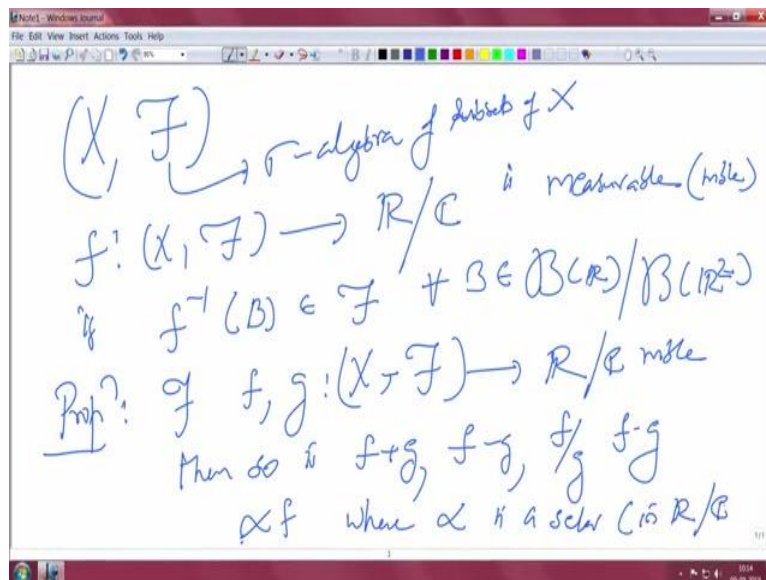 Note1 - Windows Journal
File Edit View Insert Actions Tools Help
(X, ℱ)
σ-algebra of subsets of X
f: (X, ℱ) → ℝ/ℂ is measurable (mble)
if f⁻¹(B) ∈ ℱ ∀ B ∈ ℬ(ℝ)/ℬ(ℝ²)
Propⁿ: If f, g : (X, ℱ) → ℝ/ℂ mble
then so is f+g, f-g, f/g f·g
αf where α is a scalar (in ℝ/ℂ
1/1
1
10:14